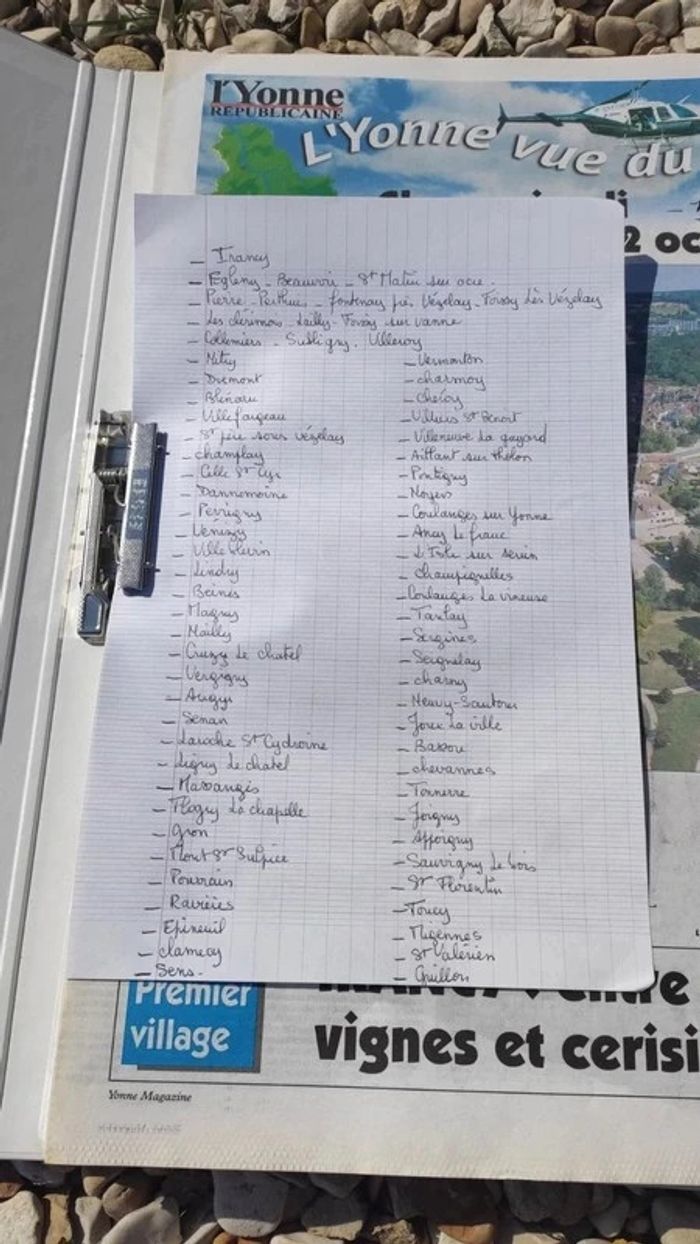 l'Yonne
RÉPUBLICAINE
L'Yonne vue du
2 oc
_ Irancy
_ Egleny _ Beauvoir _ St Matin sur ocre.
_ Pierre-Perthuis _ fontenay près Vézelay - Foissy Lès Vézelay
_ Les clérimois _ Lailly - Foissy sur vanne
_ Collemiers _ Subligny. Villeroy
_ Nitry
_ Dixmont
_ Bléneau
_ Villefargeau
_ St père sous vézelay
_ champlay
_ Celle St Cyr
_ Dannemoine
_ Perrigny
_ Vénizy
_ Villethierry
_ Lindry
_ Beines
_ Magny
_ Mailly
_ Cruzy Le chatel
_ Vergigny
_ Augy
_ Senan
_ Laroche St Cydroine
_ Ligny Le chatel
_ Massangis
_ Flogny La chapelle
_ Gron
_ Mont St Sulpice
_ Pourrain
_ Ravières
_ Epineuil
_ clamecy
_ Sens.
_ Vermenton
_ charmoy
_ cheroy
_ Villiers St Benoit
_ Villeneuve La guyard
_ Aillant sur tholon
_ Pontigny
_ Noyers
_ Coulanges sur Yonne
_ Ancy Le franc
_ L'Isle sur serein
_ champignelles
_ Coulanges La vineuse
_ Tanlay
_ Sergines
_ Seignelay
_ charny
_ Neuvy-Sautour
_ Joux La ville
_ Bassou
_ chevannes
_ Tonnerre
_ Joigny
_ Appoigny
_ Sauvigny Le bois
_ St Florentin
_ Toucy
_ Migennes
_ St Valérien
_ Guillon
Premier
village
vignes et cerisi
Yonne Magazine